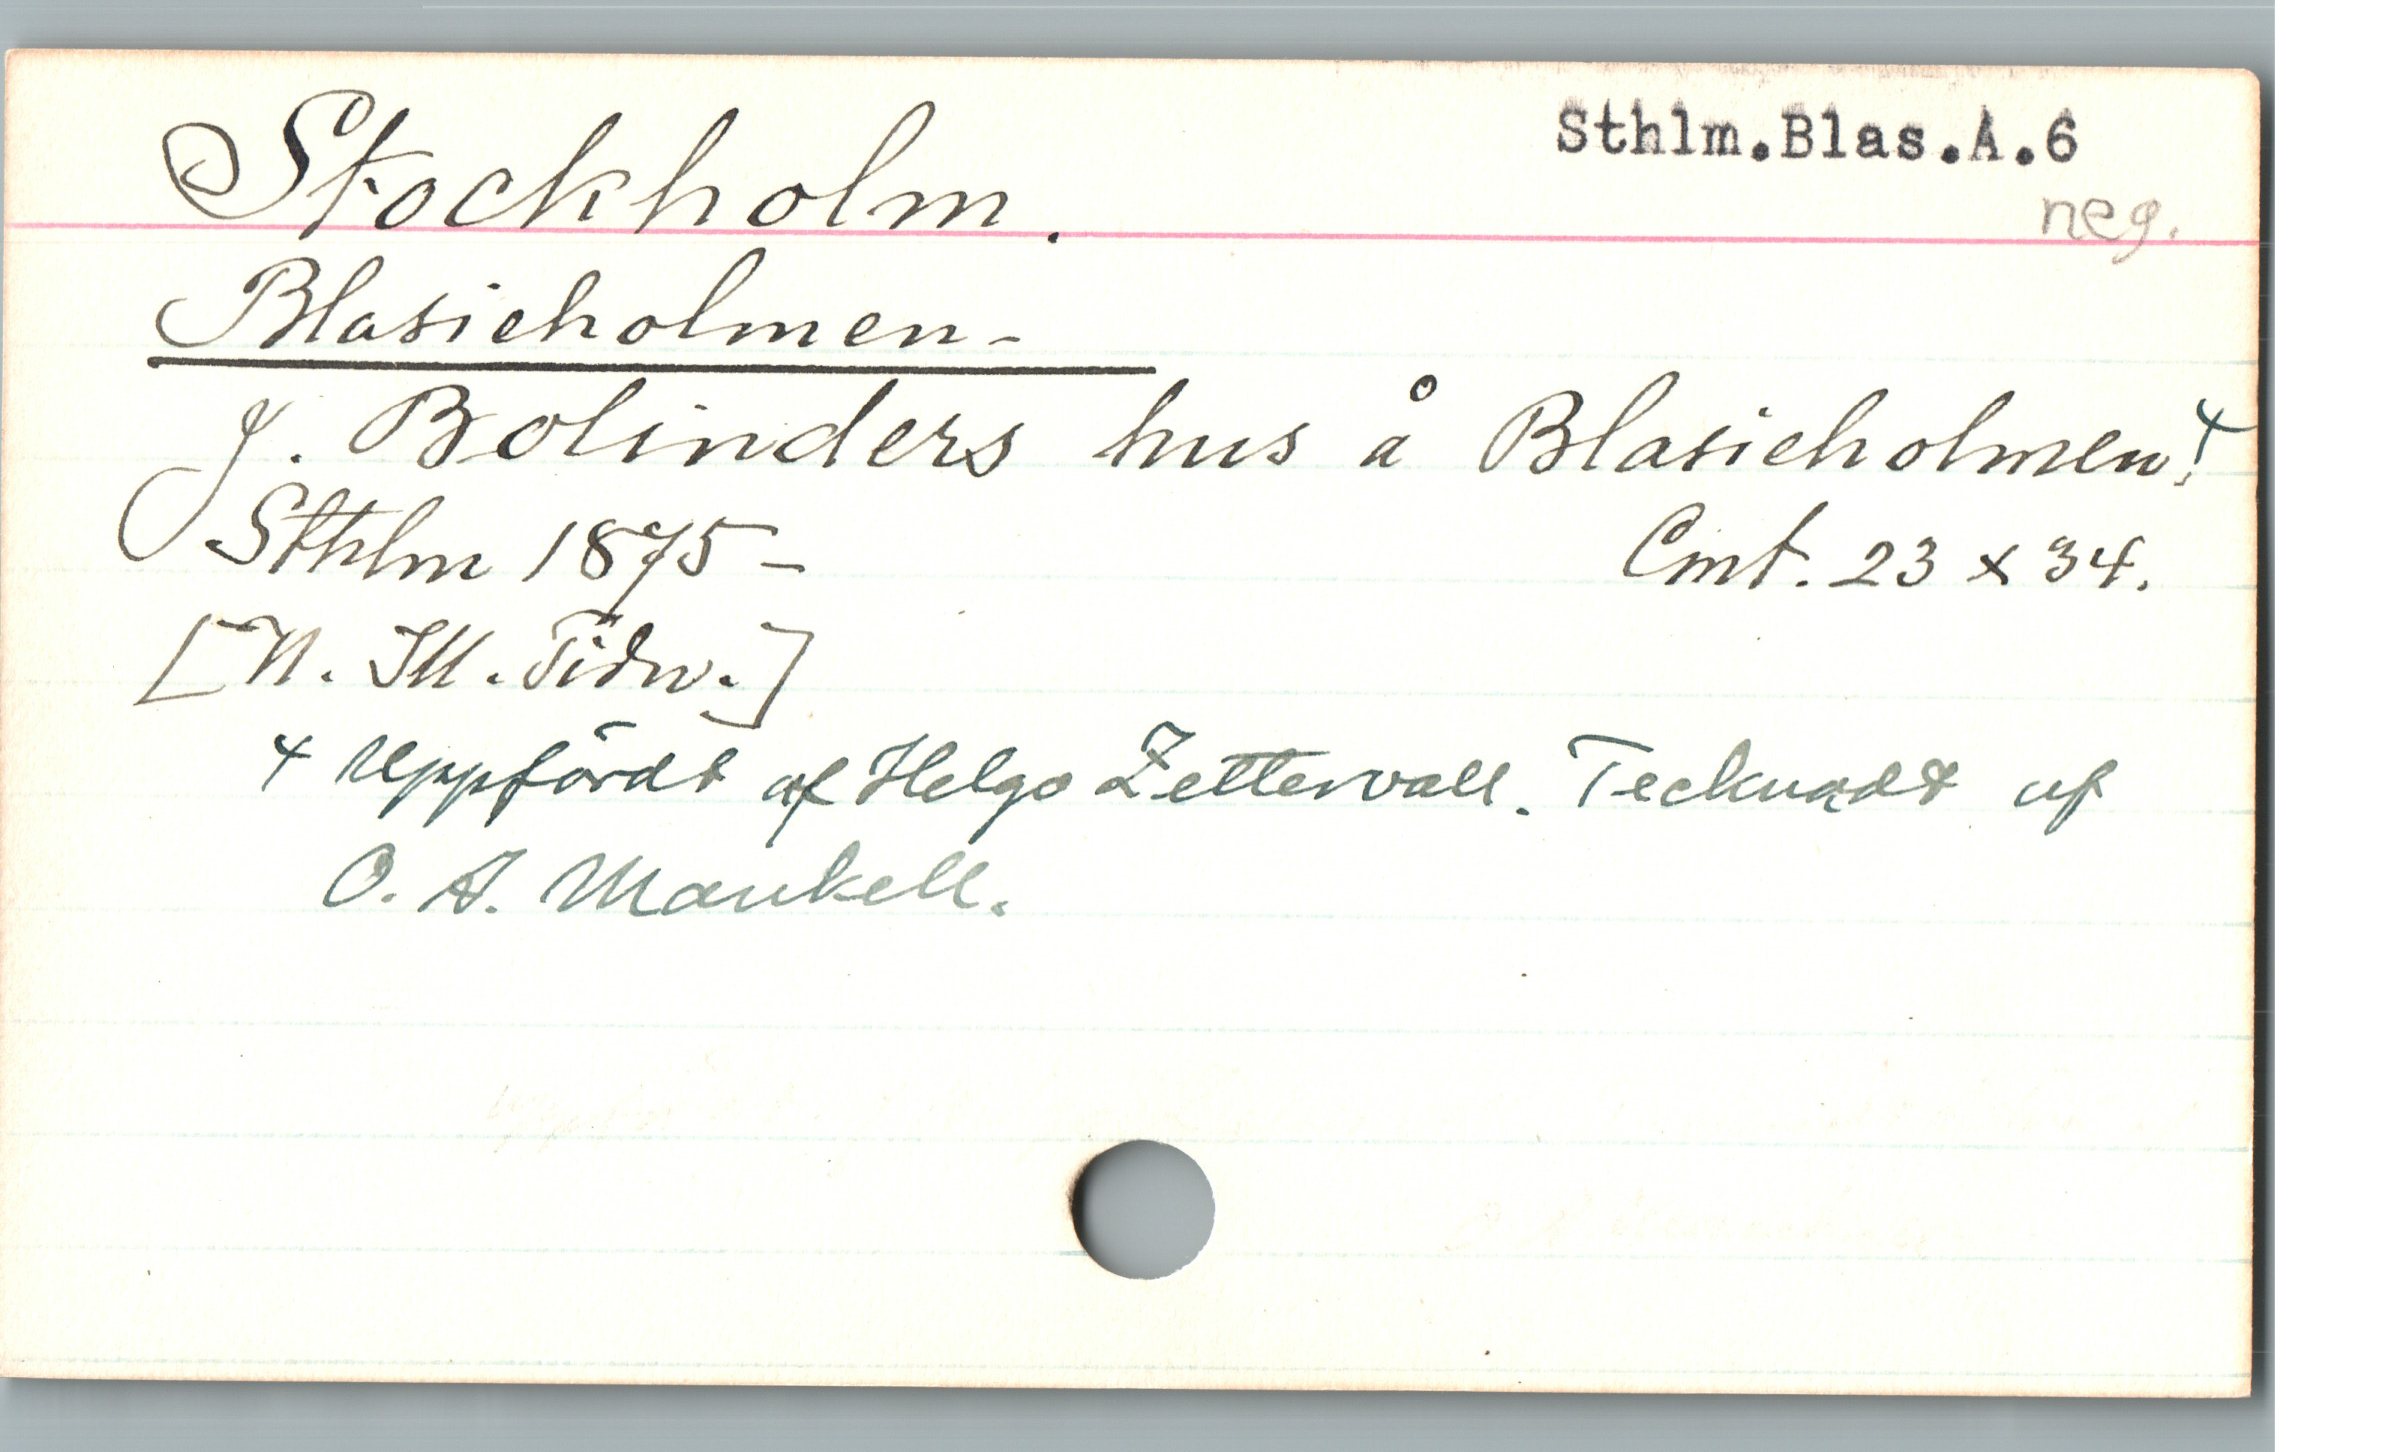 Sthlm.Blas.A.6
neg.
Stockholm.
Blasieholmen-
J. Bolinders hus å Blasieholmen. +
Sthlm 1875 -
Cmt. 23 x 34.
[N. Ill. Tidn.]
+ Uppfördt af Helgo Zettervall. Tecknadt af
O. A. Mankell.